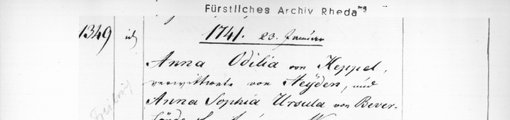 Fürstliches Archiv Rheda
1349
1741. 23. Januar
Anna Odilia von Keppel,
verwittwete von Heyden, und
Anna Sophia Ursula von Bever-